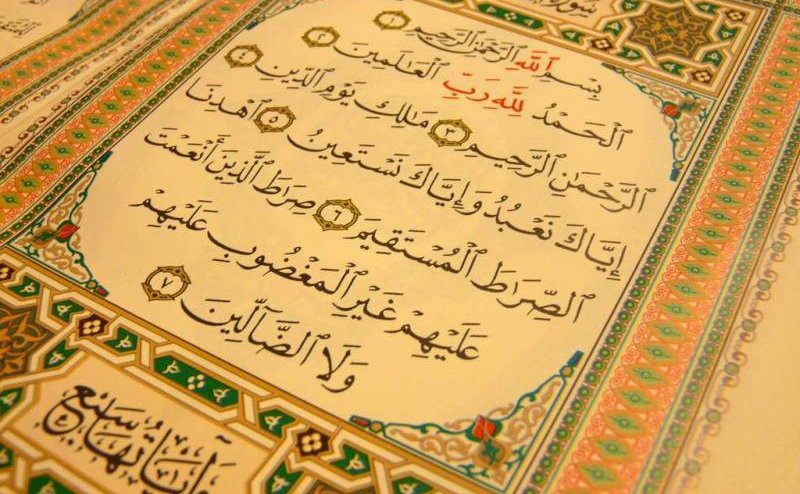 سُورَةُ
بِسْمِ ٱللَّهِ ٱلرَّحْمَٰنِ ٱلرَّحِيمِ ١
ٱلْحَمْدُ لِلَّهِ رَبِّ ٱلْعَٰلَمِينَ ٢
ٱلرَّحْمَٰنِ ٱلرَّحِيمِ ٣ مَٰلِكِ يَوْمِ ٱلدِّينِ ٤
إِيَّاكَ نَعْبُدُ وَإِيَّاكَ نَسْتَعِينُ ٥ ٱهْدِنَا
ٱلصِّرَٰطَ ٱلْمُسْتَقِيمَ ٦ صِرَٰطَ ٱلَّذِينَ أَنْعَمْتَ
عَلَيْهِمْ غَيْرِ ٱلْمَغْضُوبِ عَلَيْهِمْ
وَلَا ٱلضَّآلِّينَ ٧
وَآيَاتُهَا سَبْعٌ